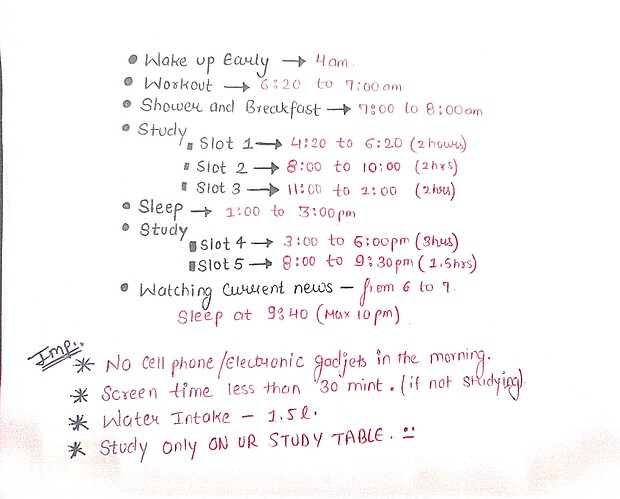 • Wake up Early → 4am.
• Workout → 6:20 to 7:00am
• Shower and Breakfast → 7:00 to 8:00am
• Study
▪ Slot 1 → 4:20 to 6:20 (2hours)
▪ Slot 2 → 8:00 to 10:00 (2hrs)
▪ Slot 3 → 11:00 to 1:00 (2hrs)
• Sleep → 1:00 to 3:00pm
• Study
▪ Slot 4 → 3:00 to 6:00pm (3hrs)
▪ Slot 5 → 8:00 to 9:30pm (1.5hrs)
• Watching current news – from 6 to 7.
Sleep at 9:40 (Max 10pm)
Imp:.
* No cell phone/Electronic gadjets in the morning.
* Screen time less than 30 mint. (if not studying)
* Water Intake – 1.5l.
* Study only ON UR STUDY TABLE.